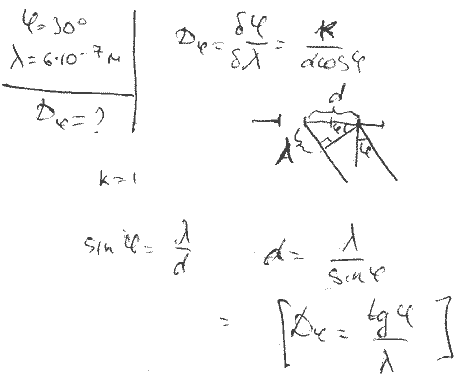 φ=30°
λ=6·10⁻⁷м
Dφ=?
Dφ = δφ/δλ = k/(d cosφ)
d
φ
φ
k=1
sinφ = λ/d
d = λ/sinφ
= [Dφ = tgφ/λ]